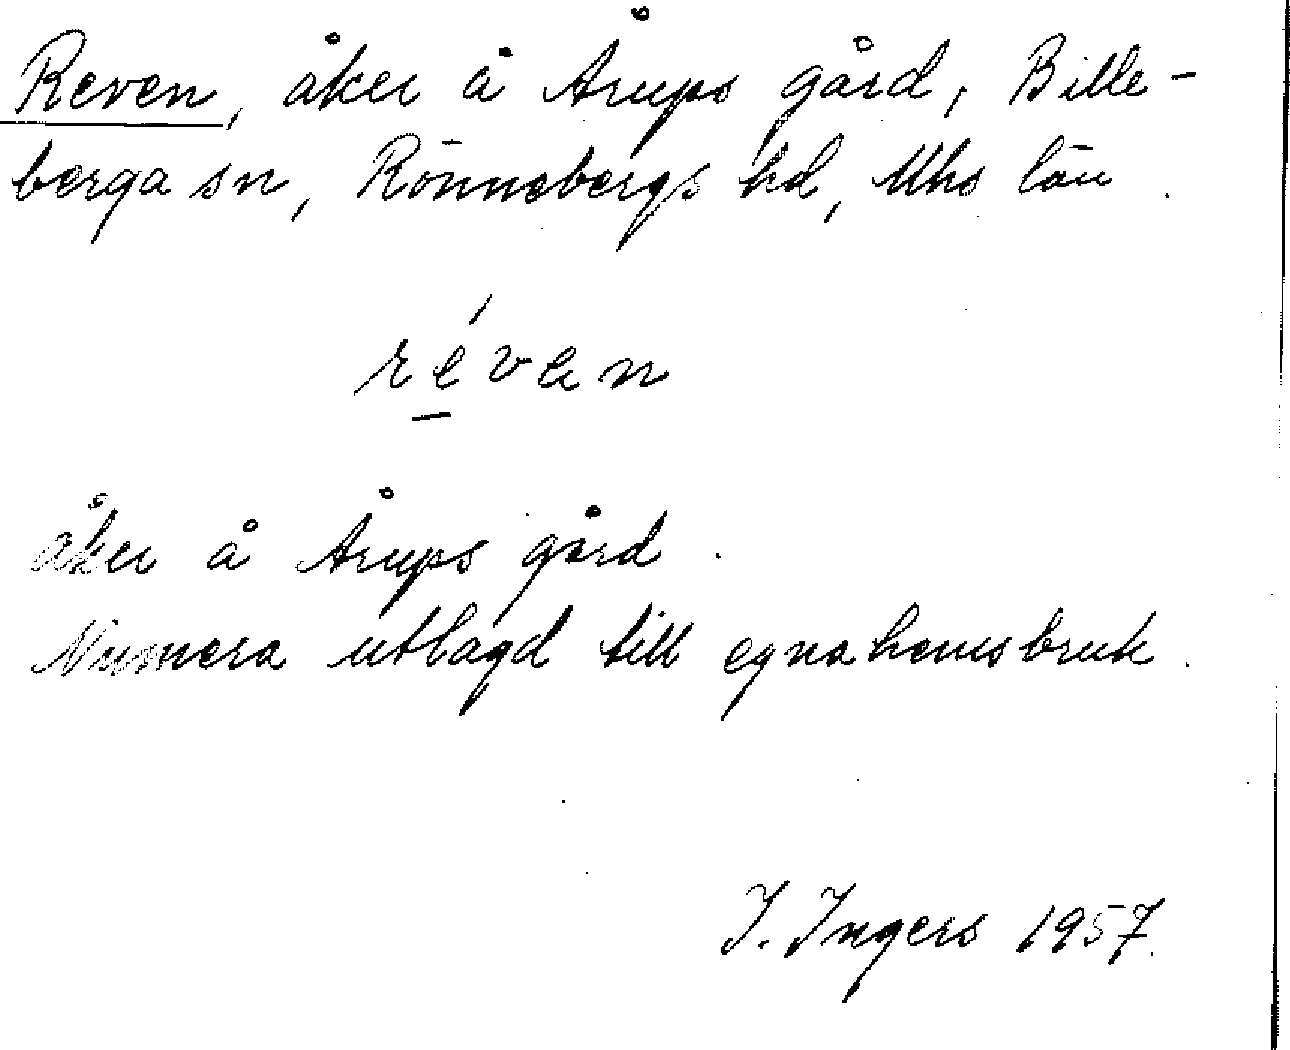 Reven, åker å Årups gård, Bille-
berga sn, Rönnebergs hd, Mhs län.
révan
åker å Årups gård.
Numera utlagd till egnahemsbruk.
I. Ingers 1957.